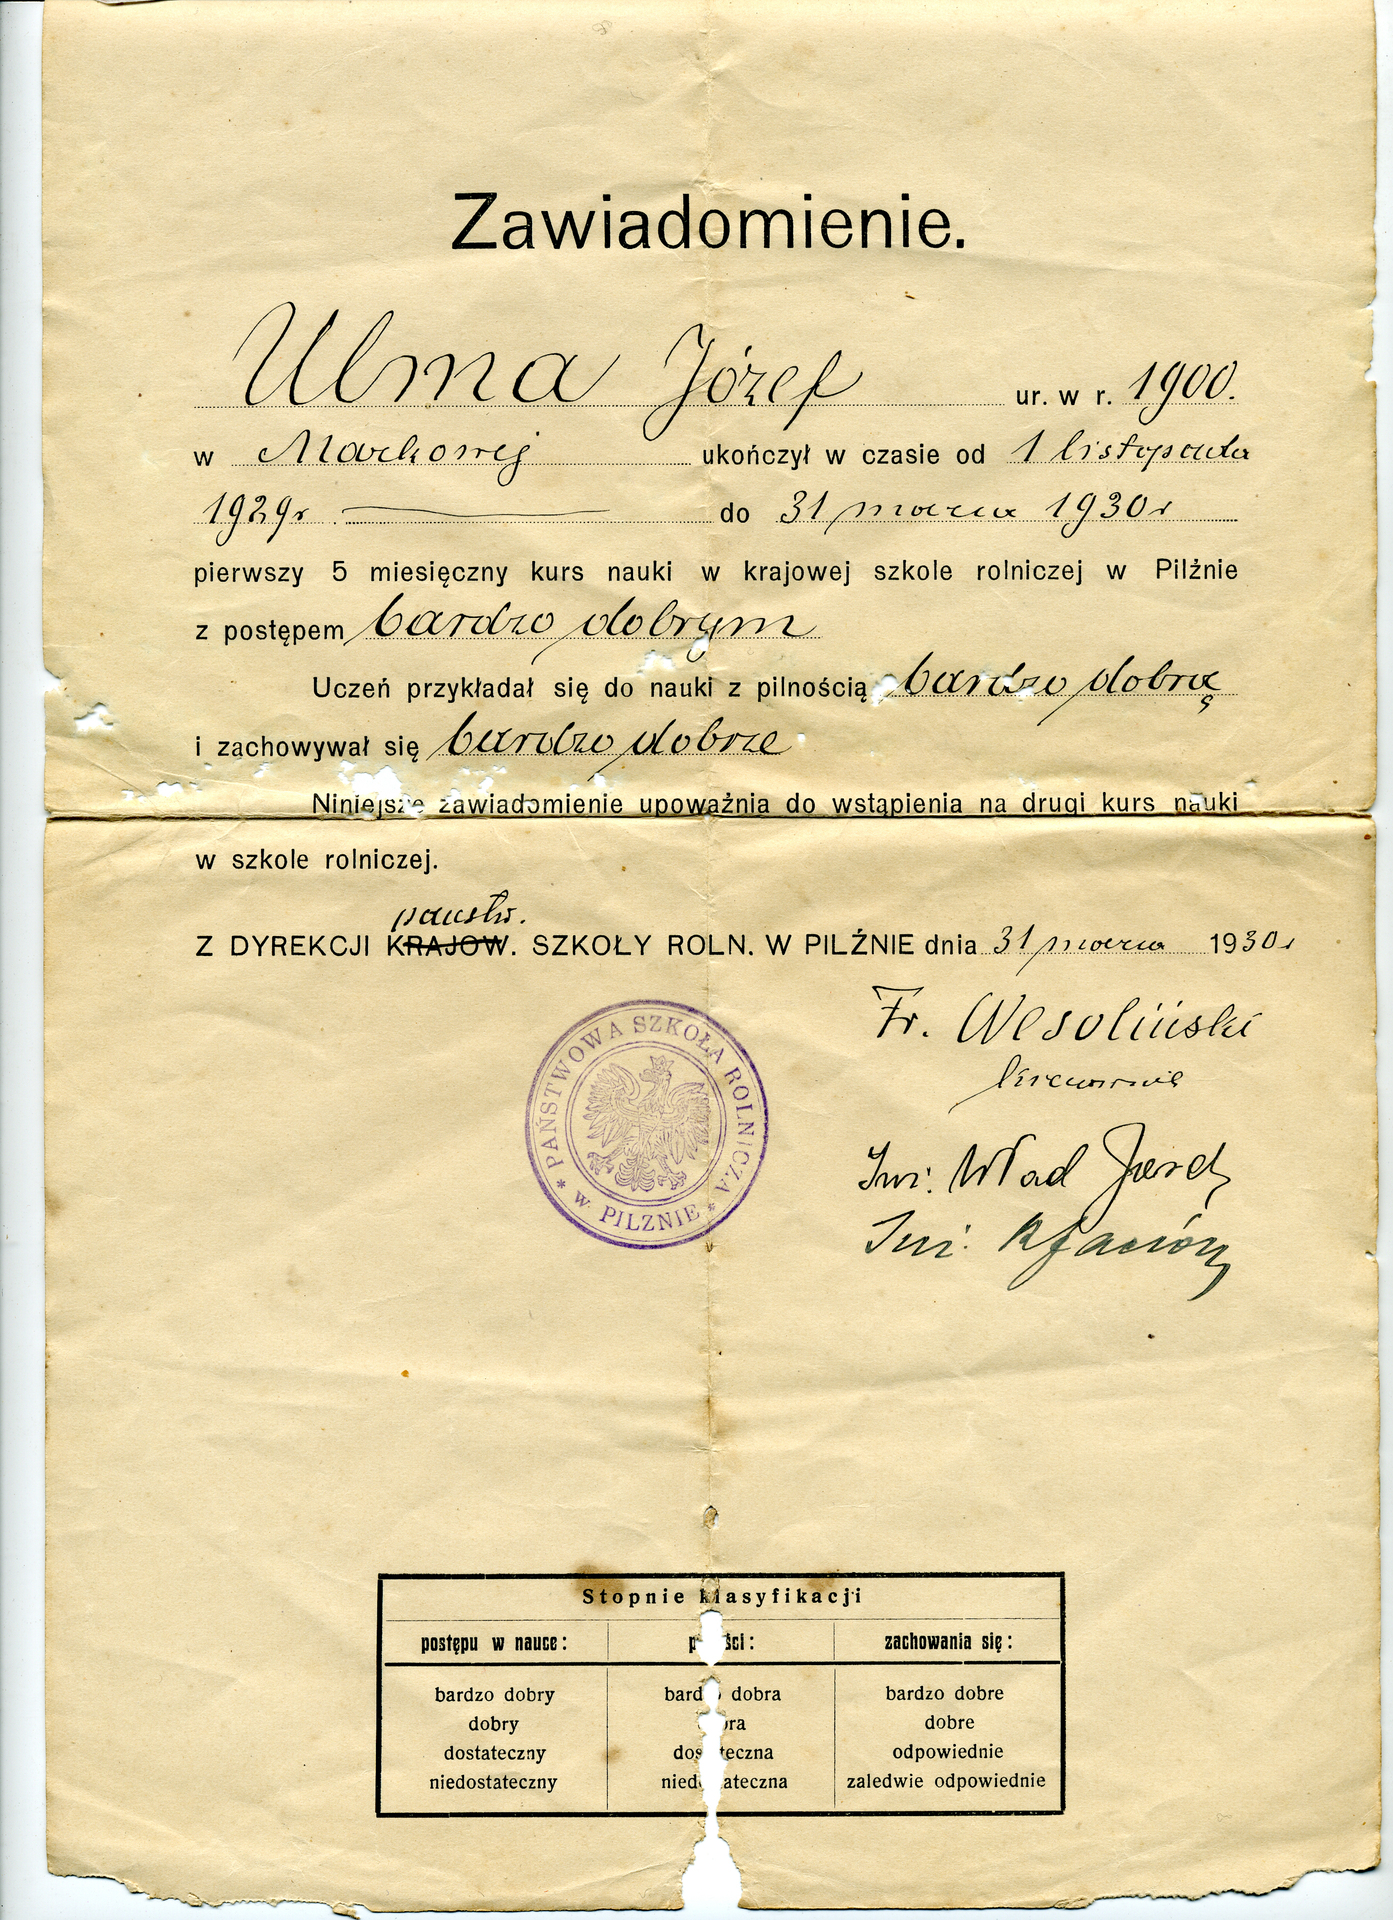 Zawiadomienie.
Ulma Józef ur. w r. 1900.
w Markowej ukończył w czasie od 1 listopada
1929r do 31 marca 1930r
pierwszy 5 miesięczny kurs nauki w krajowej szkole rolniczej w Pilźnie
z postępem bardzo dobrym
Uczeń przykładał się do nauki z pilnością bardzo dobrą
i zachowywał się bardzo dobrze
Niniejsze zawiadomienie upoważnia do wstąpienia na drugi kurs nauki
w szkole rolniczej.
państw.
Z DYREKCJI KRAJOW. SZKOŁY ROLN. W PILŹNIE dnia 31 marca 1930r
PAŃSTWOWA SZKOŁA ROLNICZA
* W PILZNIE *
Fr. Wesoliński
Inż. Wład
Inż.
Stopnie klasyfikacji
postępu w nauce: zachowania się:
bardzo dobry bard dobra bardzo dobre
dobry ra dobre
dostateczny dos teczna odpowiednie
niedostateczny nied ateczna zaledwie odpowiednie